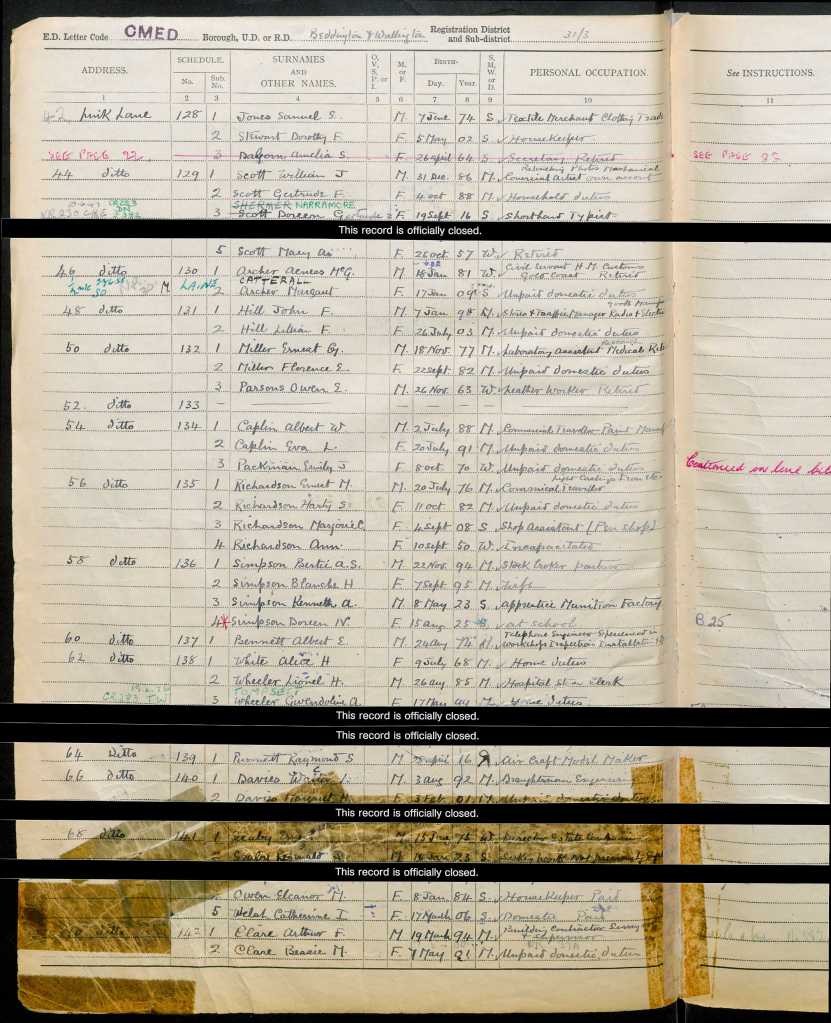 E.D. Letter Code OMED Borough, U.D. or R.D. Beddington & Wallington Registration District and Sub-district 31/3
ADDRESS. SCHEDULE. No. Sub. No. SURNAMES AND OTHER NAMES. O, V, S, P, or I. M. or F. BIRTH— Day. Year. S, M, W, or D. PERSONAL OCCUPATION. See INSTRUCTIONS.
1 2 3 4 5 6 7 8 9 10 11
42 Link Lane 128 1 Jones Samuel S. M. 7 June 74 S Textile Merchant Clothing Trade
2 Stewart Dorothy F. F. 5 May 02 S Housekeeper
SEE PAGE 22 3 Amelia S. F. 26 April 64 S Secretary Retired SEE PAGE
44 ditto 129 1 Scott William J M. 31 Dec. 86 M. Comercial Artist own account
2 Scott Gertrude F. F. 4 Oct 88 M. Household duties
NARRAMORE
3 Scott Doreen Gertrude F. 19 Sept 16 S Shorthand Typist
This record is officially closed.
5 Scott Mary An F. 26 Oct 57 W. Retired
46 ditto 130 1 Archer Aeneas McG. M. 18 Jan 81 W. Civil Servant H.M. Customs Gold Coast Retired
CATTERALL
LAING 2 Archer Margaret F. 17 Jan 09 S Unpaid domestic duties
48 ditto 131 1 Hill John F. M. 7 Jan 98 M. Sales & Traffic Manager Radio & Electric
2 Hill Lillian F. F. 26 July 03 M. Unpaid domestic duties
50 ditto 132 1 Miller Ernest Gy. M. 18 Nov. 77 M. Laboratory assistant Medical Research
2 Miller Florence E. F. 22 Sept 82 M. Unpaid domestic duties
3 Parsons Owen E. M. 26 Nov. 63 W Leather Worker Retired
52. ditto 133 — — — — —
54 ditto 134 1 Caplin Albert W. M. 2 July 88 M. Commercial Traveller Paint Manuf
2 Caplin Eva L. F. 20 July 91 M. Unpaid domestic duties
3 Packman Emily J F. 8 Oct. 70 W. Unpaid domestic duties Continued on line
56 ditto 135 1 Richardson Ernest M. M. 20 July 76 M. Commercial Traveller
2 Richardson Harty S. F. 11 Oct 82 M. Unpaid domestic duties
3 Richardson Marjorie C. F. 4 Sept 08 S Shop Assistant (Pen shop)
4 Richardson Ann. F. 10 Sept 50 W. Incapacitated
58 ditto 136 1 Simpson Bertie A.S. M. 22 Nov. 94 M. Stock Broker partner
2 Simpson Blanche H F. 7 Sept 95 M. Wife
3 Simpson Kenneth A. M. 8 May 23 S. Apprentice Munition Factory
4 Simpson Doreen N. F. 15 Aug 25 S. at school B 25
60 ditto 137 1 Bennett Albert E. M. 24 Aug 74 M. Telephone Engineer Experienced in Workshops Inspection & Installation
62 ditto 138 1 White Alice H F. 9 July 68 M. Home duties
2 Wheeler Lionel H. M. 26 Aug 85 M. Hospital Clerk
TOMPSETT
CR283 TW 3 Wheeler Gwendoline A. F. 17 May M. Home duties
This record is officially closed.
This record is officially closed.
64 Ditto 139 1 Raymond S M. April 16 Air Craft Model Maker
66 ditto 140 1 Davies L. M. 3 Aug 92 M. Draughtsman Engineer
2 Davies Margaret F. 3 Feb 01 M. Unpaid domestic duties
This record is officially closed.
68 ditto 141 1 M 15 June 75 W. Director Estate
Reginald M. Jan 23 S.
This record is officially closed.
Owen Eleanor M. F. 8 Jan. 84 S. Housekeeper Paid
5 Welsh Catherine I. F. 17 March 06 S. Domestic Paid
ditto 142 1 Clare Arthur F. M 19 March 94 M. Building Contractor
2 Clare Bessie M. F. 7 May 91 M. Unpaid domestic duties